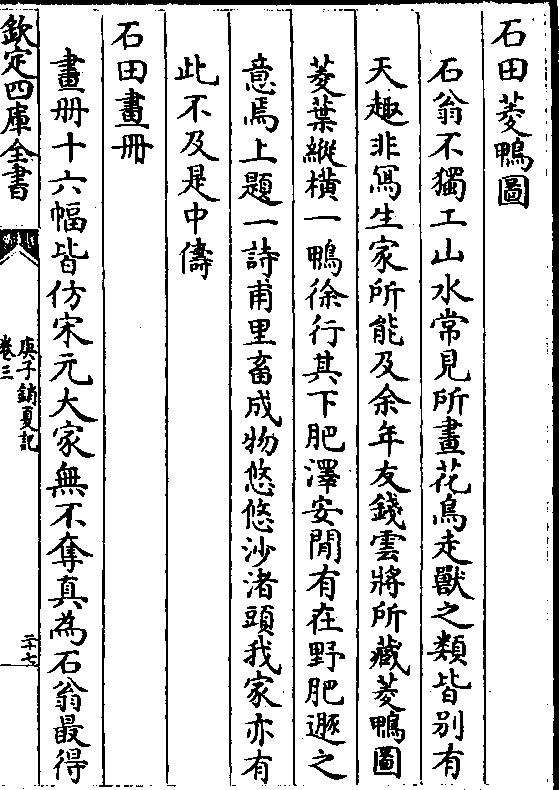 石田菱鴨圖
石翁不獨工山水常見所畫花鳥走獸之類皆別有
天趣非寫生家所能及余年友錢雲將所藏菱鴨圖
菱葉縱横一鴨徐行其下肥澤安閒有在野肥遯之
意焉上題一詩甫里畜成物悠悠沙渚頭我家亦有
此不及是中儔
石田畫冊
畫冊十六幅皆仿宋元大家無不奪真為石翁最得
欽定四庫全書
庚子銷夏記
卷三
二十七